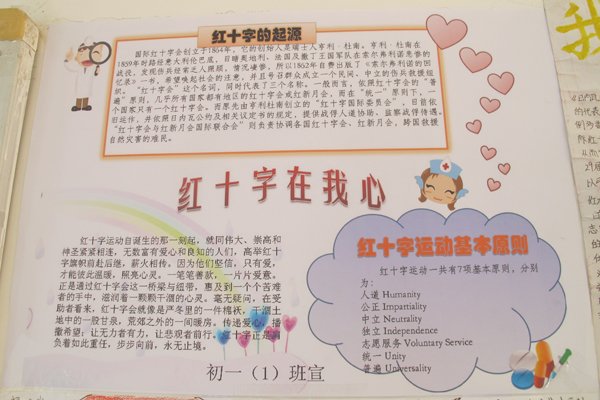 红十字的起源
国际红十字会创立于1864年，它的创始人是瑞士人亨利·杜南。亨利·杜南在
1859年时路经意大利伦巴底，目睹奥地利、法国及撒丁王国军队在索尔弗利诺惨的
战役，发现伤兵皆乏人照顾，情况凄惨，所以1862年自费出版了《索尔弗利诺的回
忆录》一书，希望唤起社会的注意，并且号召群众成立一个民间、中立的伤兵救援组
织。“红十字会”这个名词，同时代表了三个名称。一般而言，依照红十字会的“普
遍”原则，几乎所有国家都有地区的红十字会或红新月会，而在“统一”原则下，一
个国家只有一个红十字会。而原先由亨利杜南创立的“红十字国际委员会”，目前依
旧运作，并依照日内瓦公约及相关议定书的规定，提供战俘人道协助、监察战俘待遇。
“红十字会与红新月会国际联合会”则负责协调各国红十字会、红新月会，跨国救援
自然灾害的难民。
红十字在我心
红十字运动自诞生的那一刻起，就同伟大、崇高和
神圣紧紧相连，无数富有爱心和良知的人们，高举红十
字旗帜前赴后继，薪火相传。因为他们坚信，只有爱，
才能彼此温暖，照亮心灵。一笔笔善款，一片片爱意。
正是通过红十字会这一桥梁与纽带，惠及到一个个苦难
者的手中，滋润着一颗颗干涸的心灵。毫无疑问，在受
助者看来，红十字会就像是严冬里的一件棉袄，干涸土
地中的一股甘泉，荒郊之外的一间暖房。传递爱心，播
撒希望；让无力者有力，让悲观者前行。红十字正是肩
负着如此重任，步步向前，永无止境。
初一（1）班宣
红十字运动基本原则
红十字运动一共有7项基本原则，分别
为：
人道 Humanity
公正 Impartiality
中立 Neutrality
独立 Independence
志愿服务 Voluntary Service
统一 Unity
普遍 Universality
我